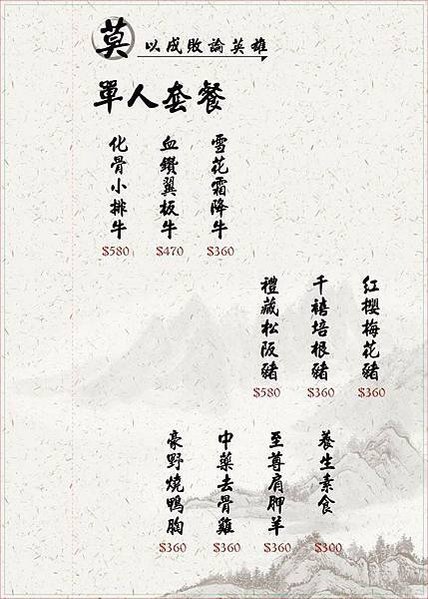 莫以成敗論英雄
單人套餐
雪花霜降牛
$360
血鑽翼板牛
$470
化骨小排牛
$580
紅櫻梅花豬
$360
千禧培根豬
$360
禮藏松阪豬
$580
養生素食
$300
至尊肩胛羊
$360
中藥去骨雞
$360
豪野燒鴨胸
$360